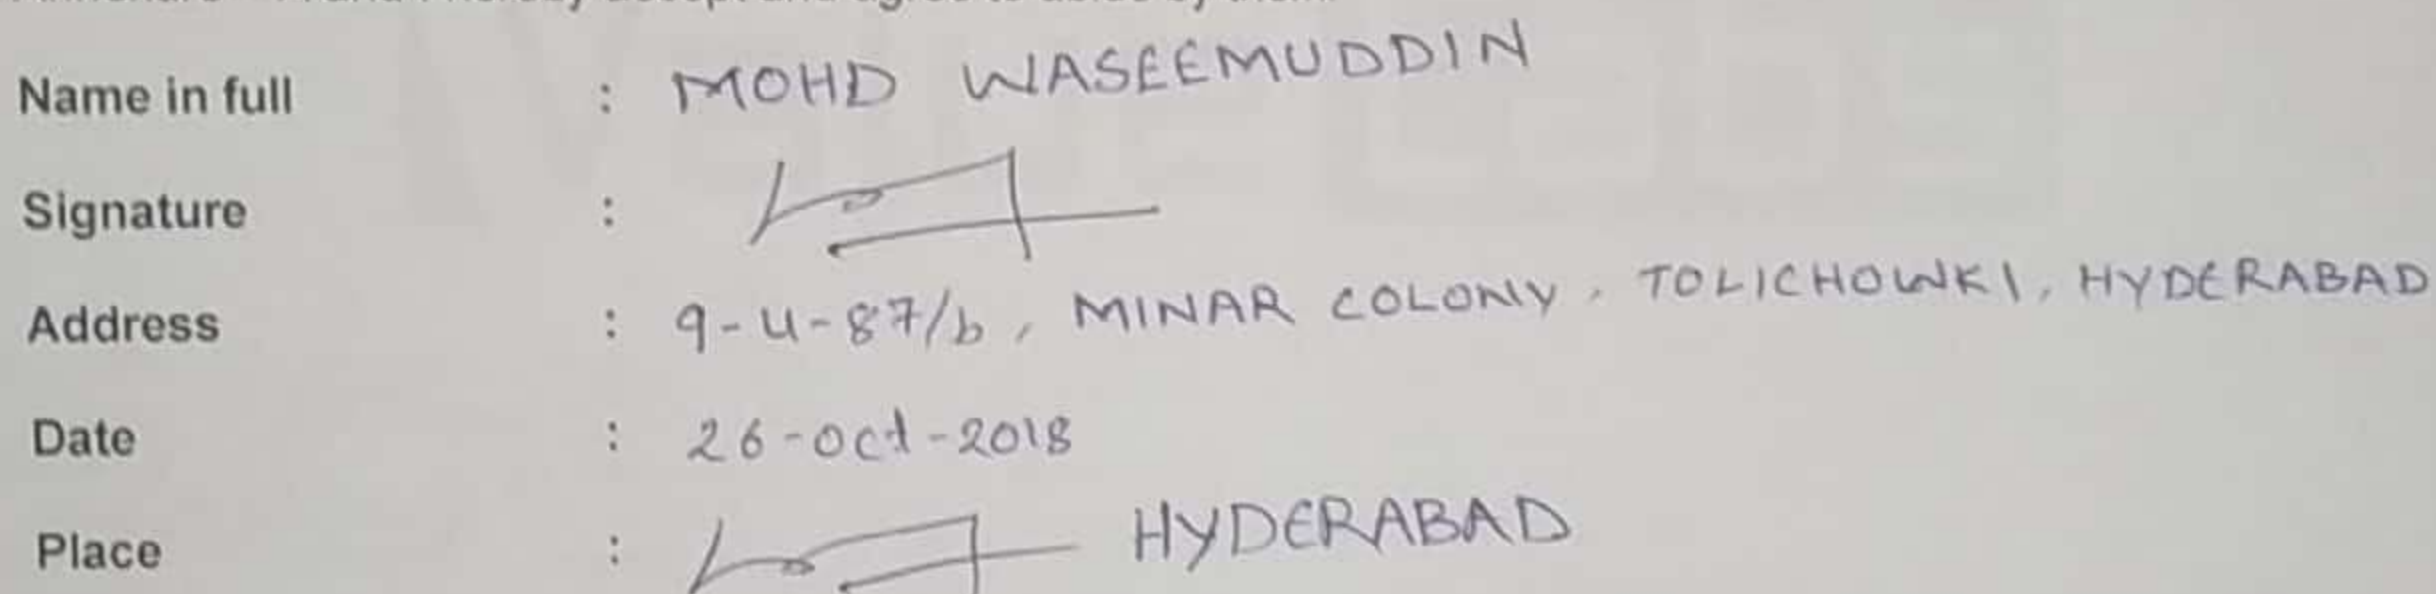 Name in full : MOHD WASEEMUDDIN
Signature :
Address : 9-4-87/b, MINAR COLONY, TOLICHOWKI, HYDERABAD
Date : 26-Oct-2018
Place : HYDERABAD